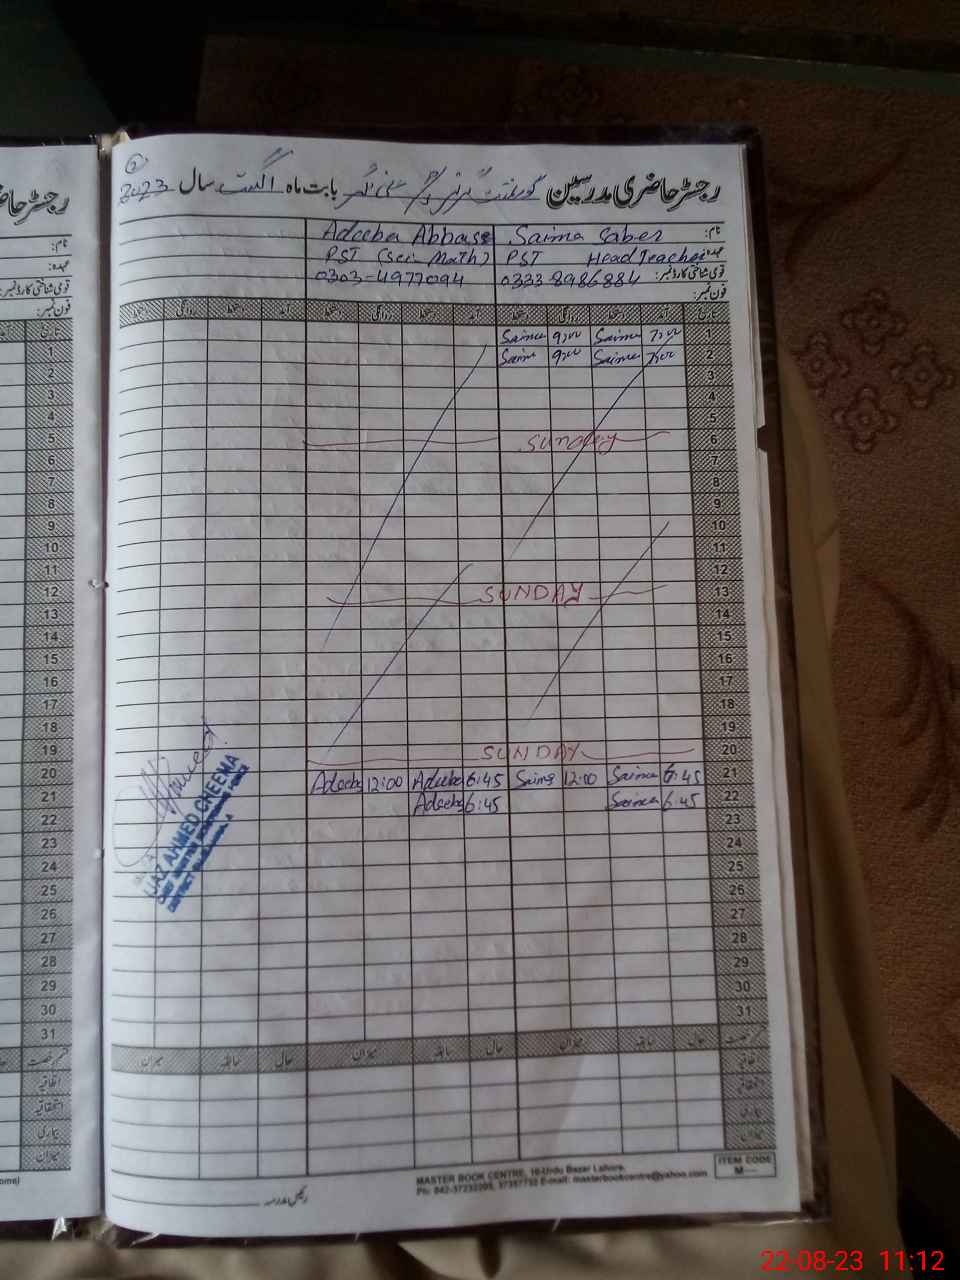 رجسٹر حاضری مدرسین گورنمنٹ گرلز بابت ماہ اگست سال 2023
نام: Saima Saber Adeeba Abbass
عہدہ: PST Head Teacher PST (Sci Math)
قومی شناختی کارڈ نمبر: 0333 8986884 0303-4977094
فون نمبر:
تاریخ آمد دستخط روانگی دستخط آمد دستخط روانگی دستخط آمد دستخط روانگی دستخط
1 7:00 Saima 9:00 Saima
2 7:00 Saima 9:00 Saima
3
4
5
6 Sunday
7
8
9
10
11
12
13 SUNDAY
14
15
16
17
18
19
20 SUNDAY
21 6:45 Saima 12:00 Saima 6:45 Adeeba 12:00 Adeeba
22 6:45 Saima 6:45 Adeeba
23
24
25
26
27
28
29
30
31
IJAZ AHMED CHEEMA
قسم رخصت حال سابقہ میزان حال سابقہ میزان حال سابقہ میزان
اتفاقیہ
استحقاقیہ
بیماری
میزان
رئیس مدرسہ
MASTER BOOK CENTRE, 16-Urdu Bazar Lahore.
E-mail: masterbookcentre@yahoo.com
ITEM CODE
M
22-08-23 11:12